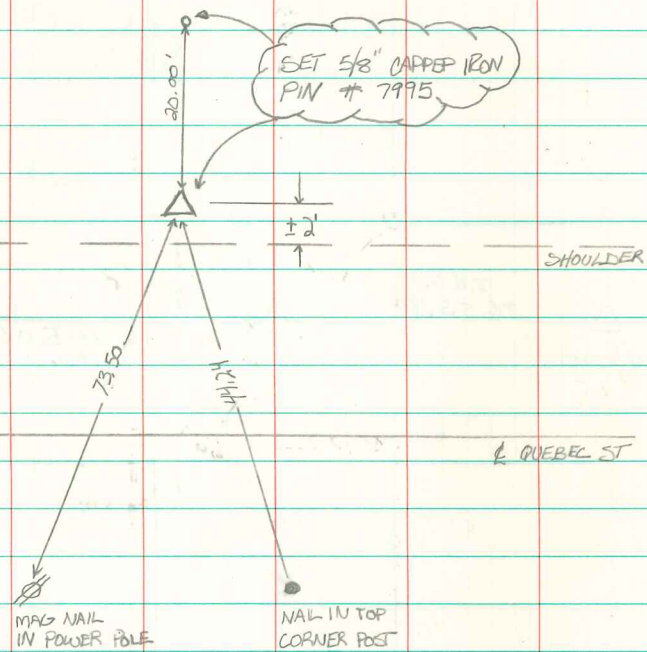 SET 5/8" CAPPED IRON
PIN # 7995
20.00'
± 2'
SHOULDER
73.50
44.24
℄ QUEBEC ST
MAG NAIL
IN POWER POLE
NAIL IN TOP
CORNER POST